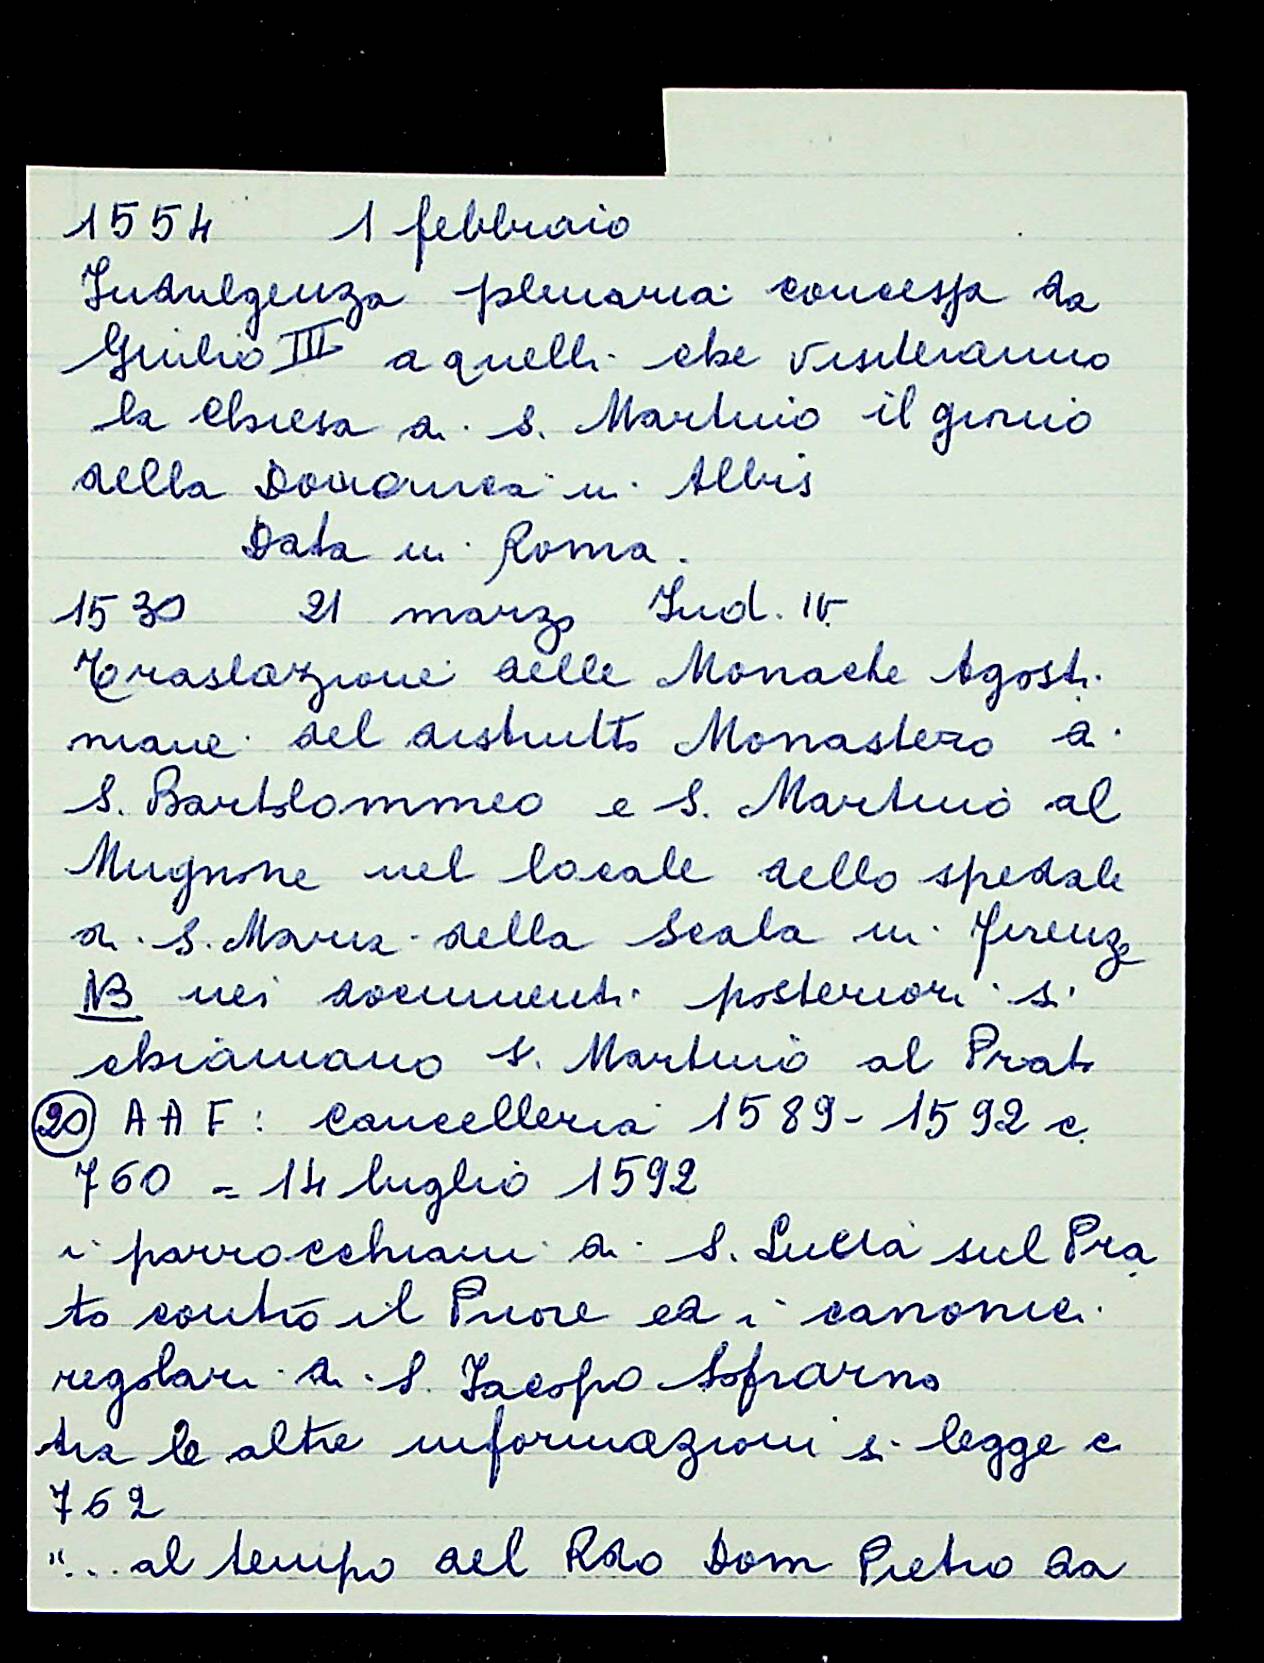 1554 1 febbraio
Indulgenza plenaria concessa da
Giulio III a quelli che visiteranno
la Chiesa di S. Martino il giorno
della Domenica in Albis
Data in Roma.
1530 21 marzo Ind. IV
Traslazione delle Monache Agosti
niane del distrutto Monastero di
S. Bartolommeo e S. Martino al
Mugnone nel locale dello spedale
di S. Maria della Scala in Firenze
NB nei documenti posteriori si
chiamano S. Martino al Prato
20 AAF: Cancelleria 1589-1592 c.
760 = 14 luglio 1592
i parrocchiani di S. Lucia sul Pra
to contro il Priore ed i canonici
regolari di S. Jacopo Soprarno
tra le altre informazioni si legge c
762
"... al tempo del Rdo Dom Pietro da